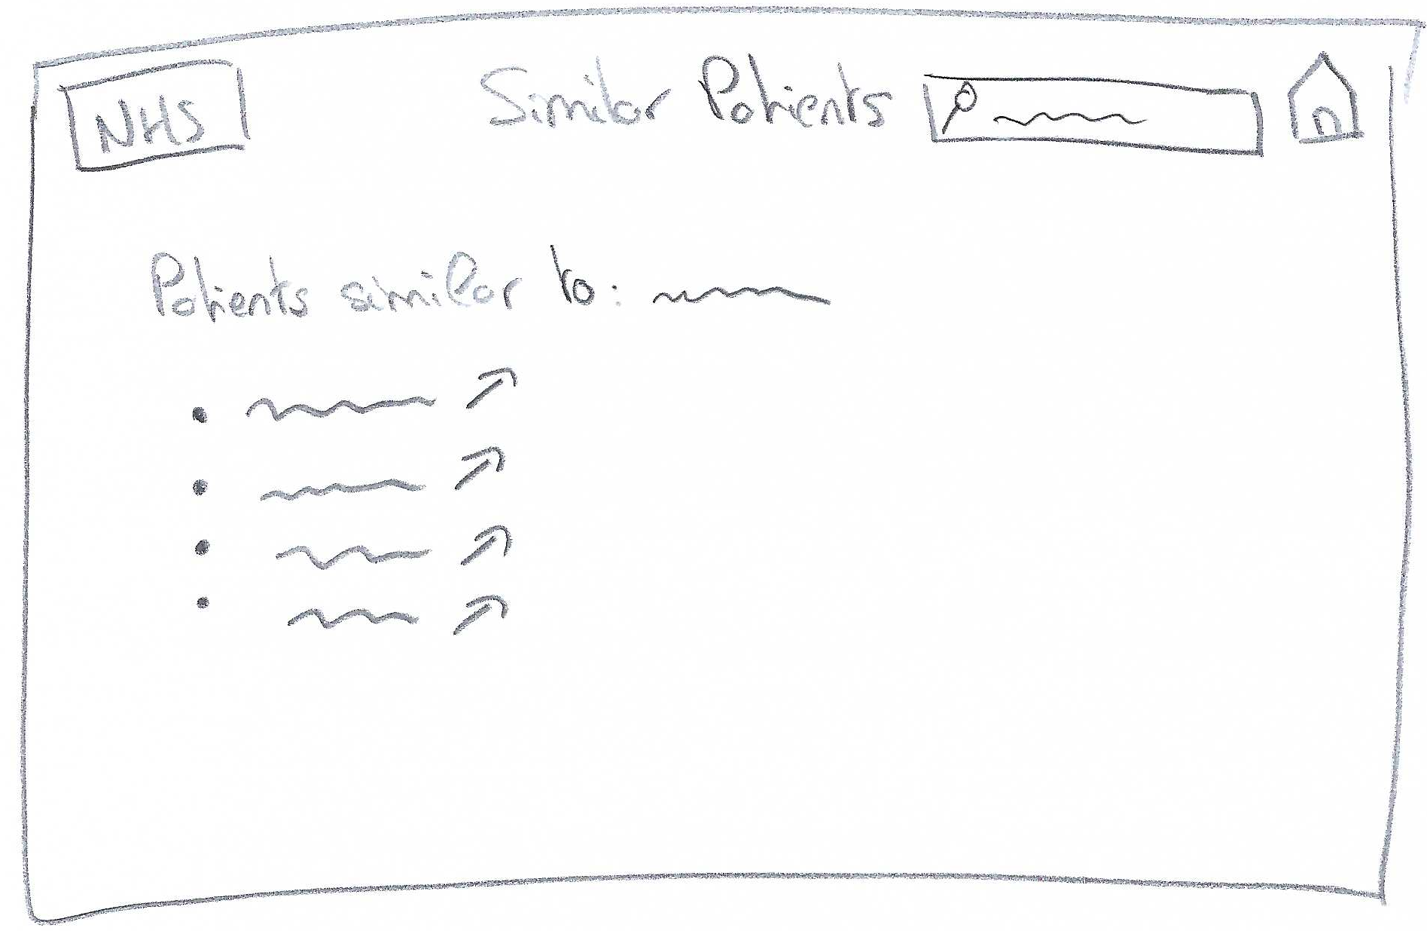 NHS
Similar Patients
Patients similar to: